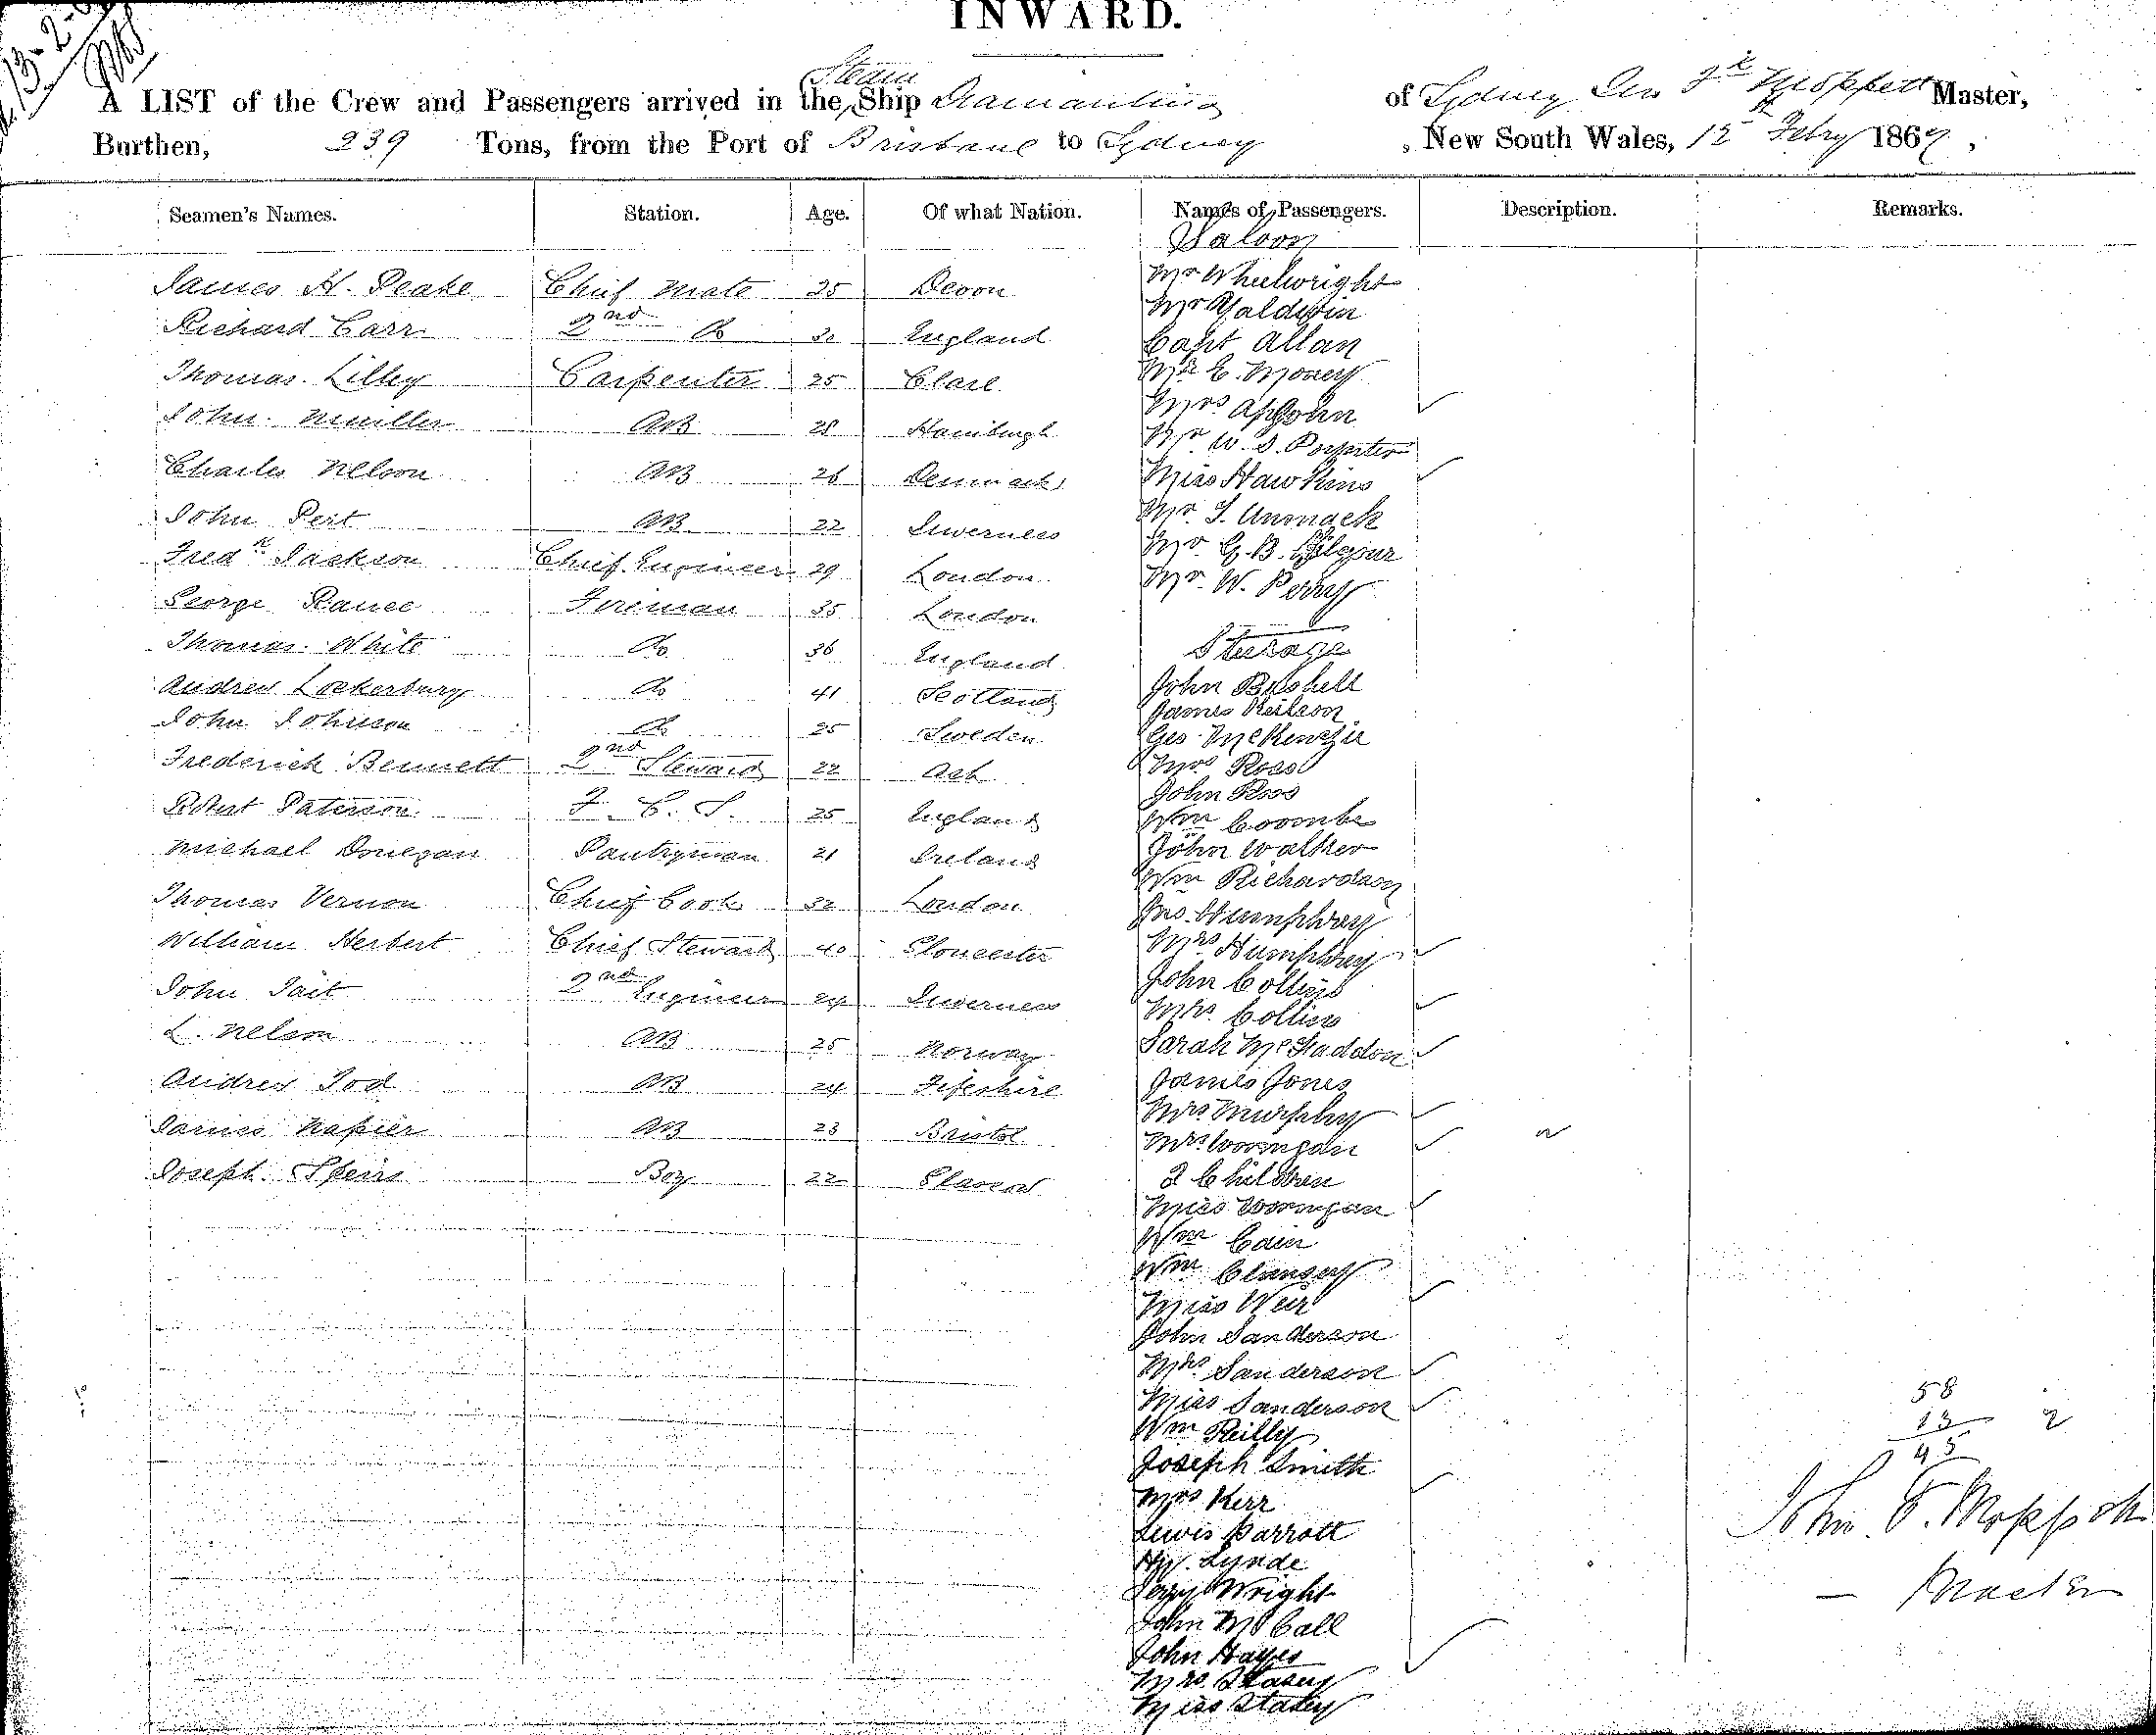 INWARD.
A LIST of the Crew and Passengers arrived in the Steam Ship Diamantina of Sydney Jno Fk Moppett Master,
Burthen, 239 Tons, from the Port of Brisbane to Sydney, New South Wales, 12th Febry 1869,
Seamen's Names. Station. Age. Of what Nation. Names of Passengers. Description. Remarks.
Saloon
James H. Peake Chief Mate 25 Devon Mr Wheelwright
Richard Carr 2nd Do 30 England
Capt Allan
Thomas Lilley Carpenter 25 Clare
John Muiller AB 28 Hamburgh Mrs ApJohn
Mr W. S. Poynter
Charles Nelson AB 26 Denmark Miss Hawkins
John Peit AB 22 Inverness Mr. J. Unmack
Fredk Jackson Chief Engineer 29 London Mr. G. B.
George Rance Fireman 35 London Mr. W. Perry
Thomas White Do 36 England Steerage
Andrew Lockerbury Do 41 Scotland John Bushell
James Neilson
John Johnson Do 25 Sweden Geo McKenzie
Frederick Bennett 2nd Steward 22 Mrs Ross
Robert Paterson F. C. S. 25 England John Ross
Wm Coombe
Michael Donegan Pantryman 21 Ireland John Walker
Wm Richardson
Thomas Vernon Chief Cook 32 London Jno. Humphrey
William Herbert Chief Steward 40 Gloucester Mrs Humphrey
John Tait 2nd Engineer 24 Inverness John Collins
Mrs. Collins
L. Nelson AB 25 Norway Sarah McFaddon
Andrew Tod AB 24 Fifeshire James Jones
Mrs Murphy
James Napier AB 23 Bristol Mrs Worngan
Joseph Speirs Boy 22 2 Children
Miss Worngan
Wm Cain
Wm Clansey
Miss Weir
John Sanderson
Mrs Sanderson
Miss Sanderson
Wm Reilly
Joseph Smith
Mrs Kerr
Lewis Parrott
Lynde
Wright
John McCall
John Hayes
Mrs. Stasey
Miss Stasey
58
13 2
45
John F. Moppett
Master